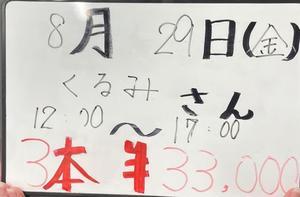 8月 29日(金)
くるみ さん
12:00～17:00
3本 半 33,000